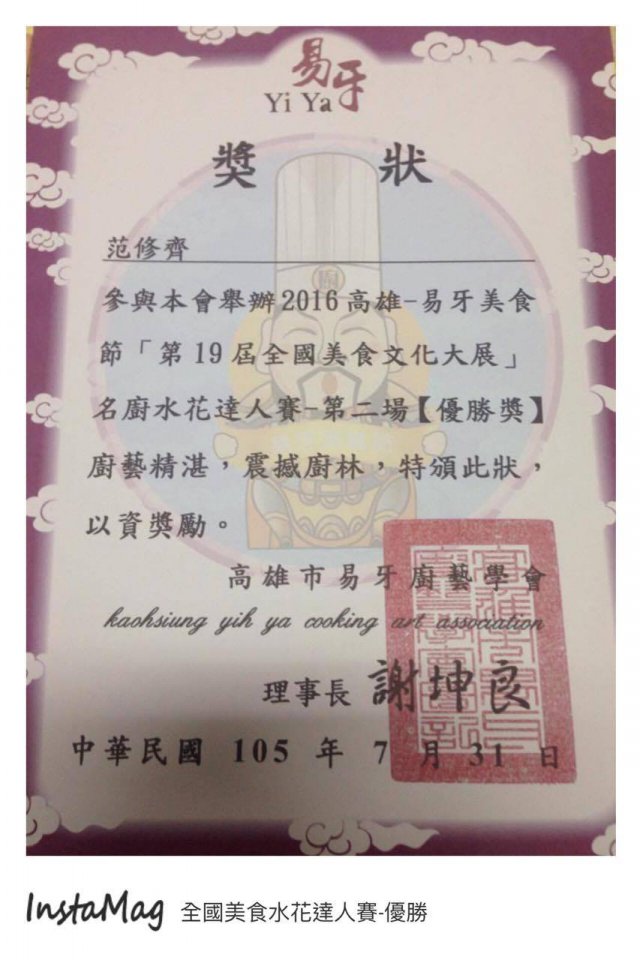 易牙
Yi Ya
獎狀
范修齊
參與本會舉辦2016高雄-易牙美食
節「第19屆全國美食文化大展」
名廚水花達人賽-第二場【優勝獎】
廚藝精湛，震撼廚林，特頒此狀，
以資獎勵。
高雄市易牙廚藝學會
kaohsiung yih ya cooking art association
理事長 謝坤良
中華民國 105 年 7 月 31 日
InstaMag 全國美食水花達人賽-優勝